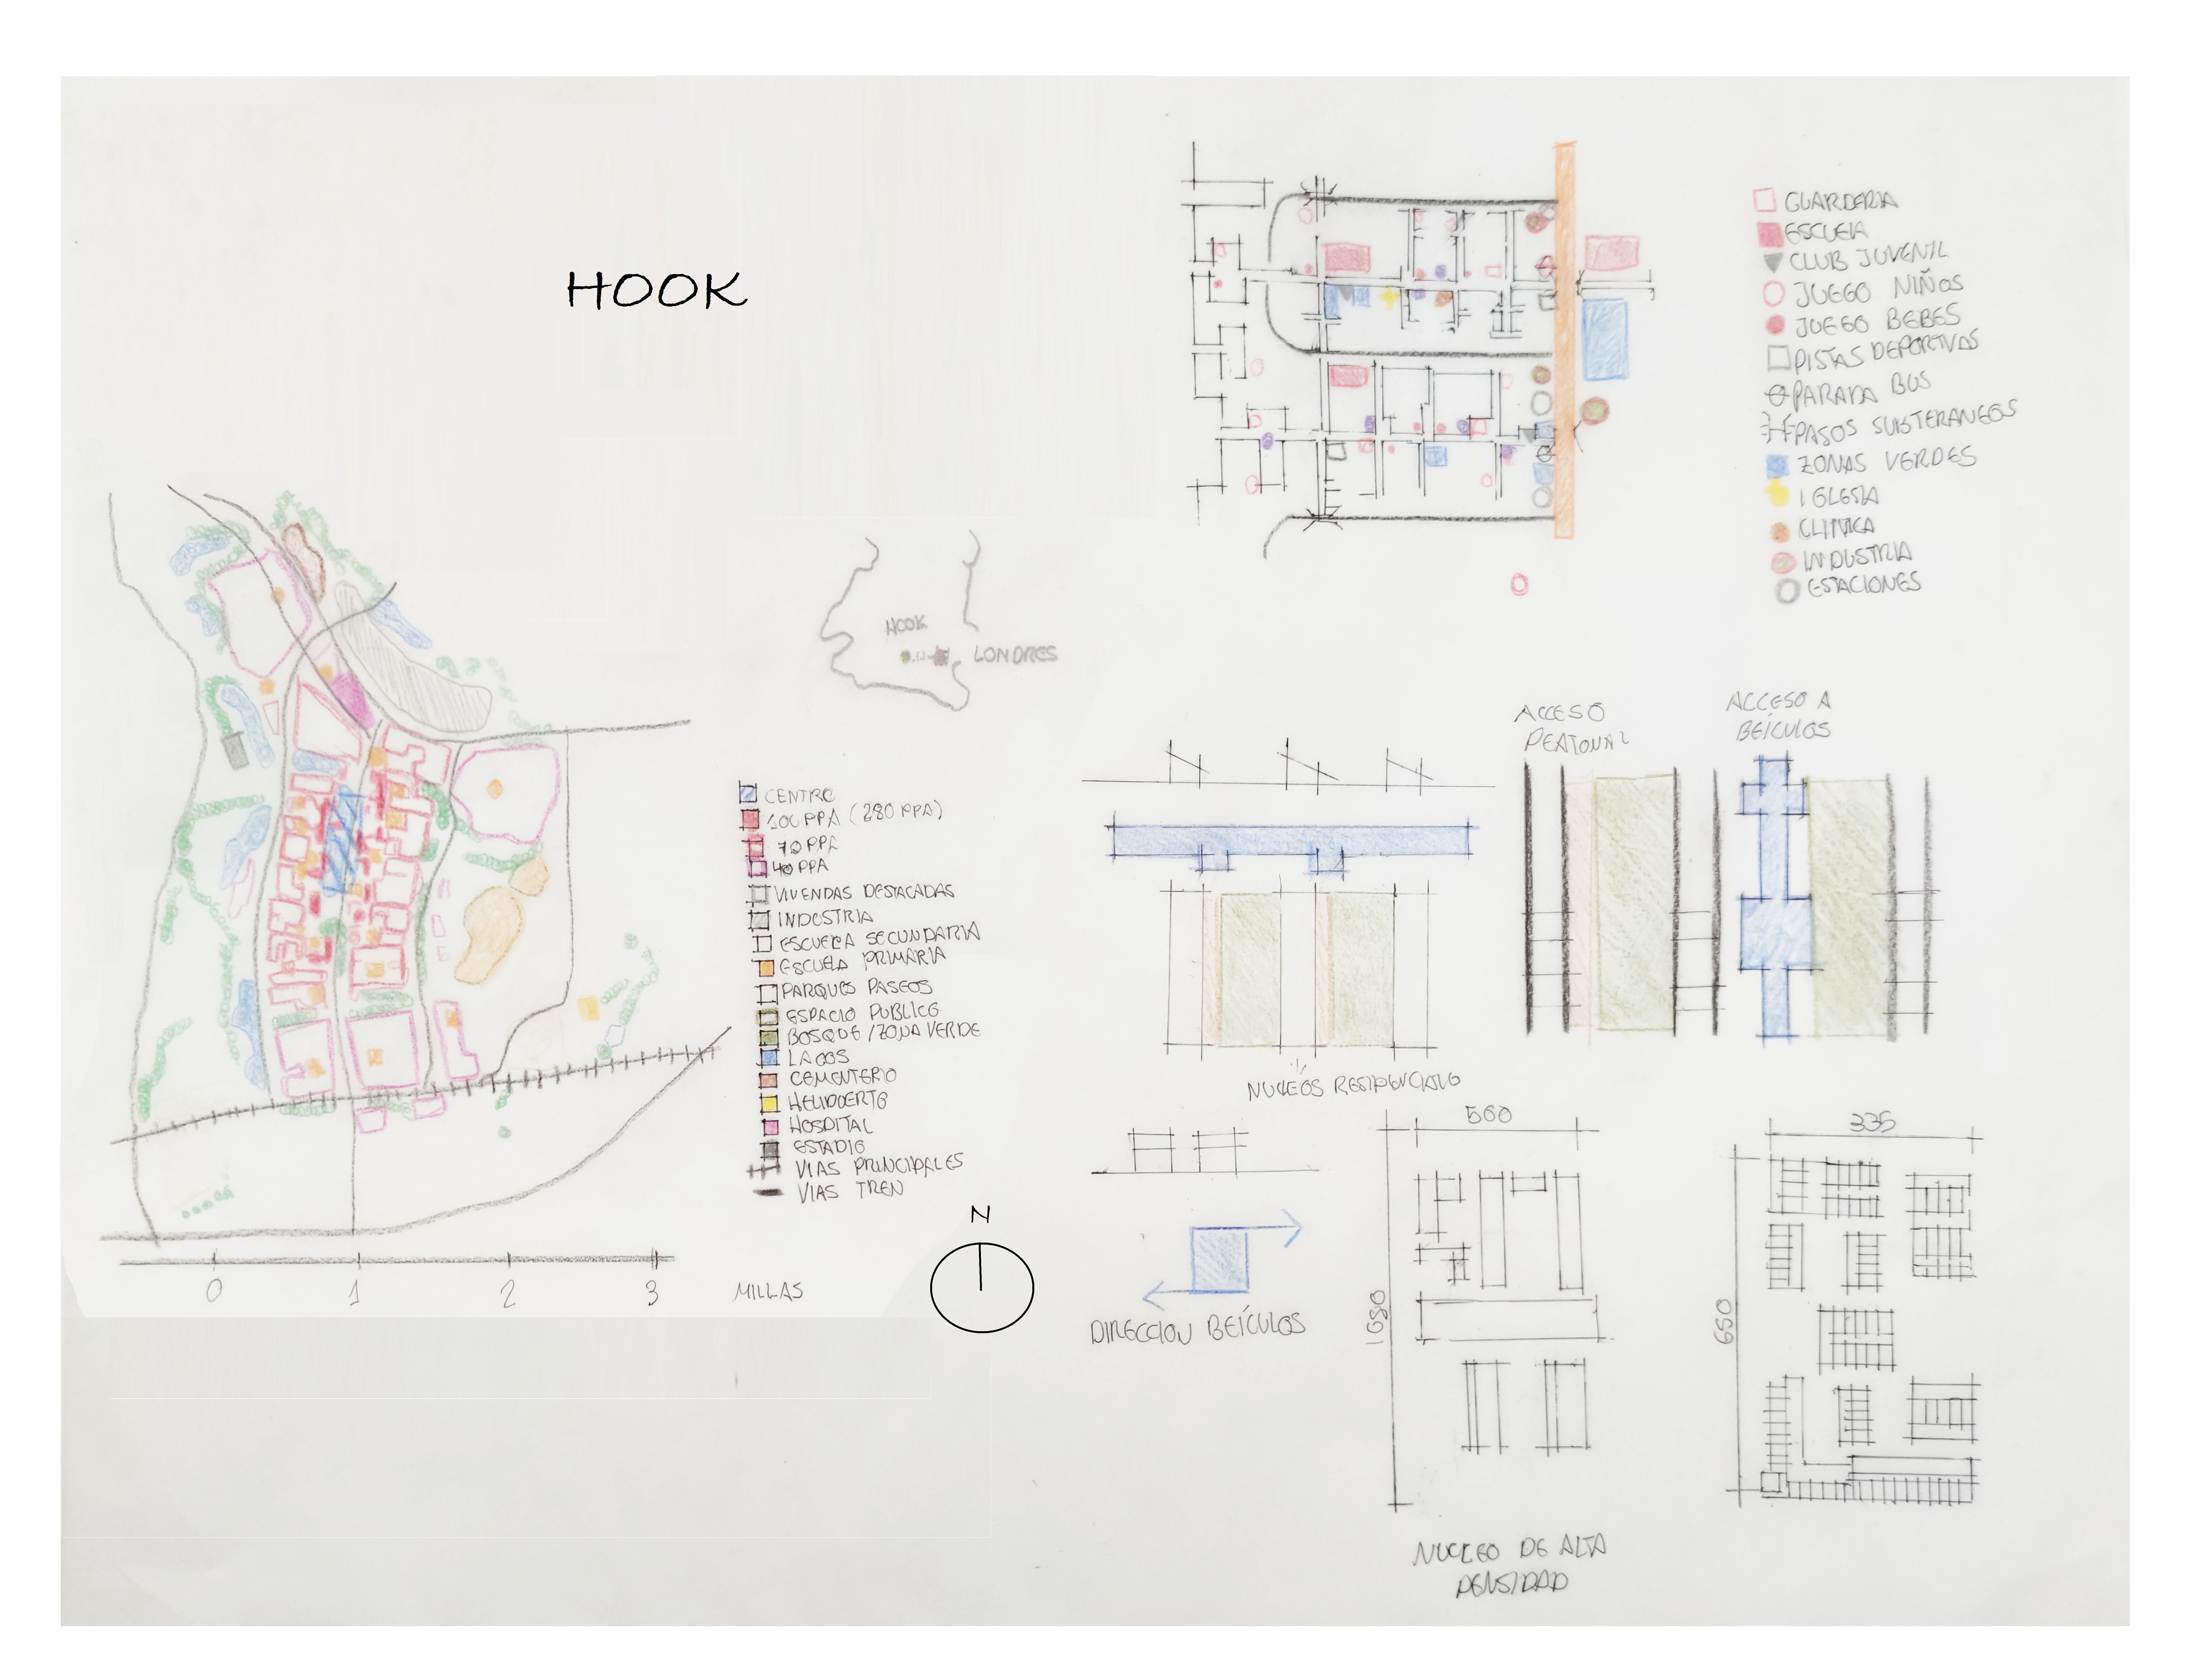 HOOK
GUARDERIA
ESCUELA
CLUB JUVENIL
JUEGO NIÑOS
JUEGO BEBES
PISTAS DEPORTIVAS
PARADA BUS
PASOS SUBTERANEOS
ZONAS VERDES
IGLESIA
CLINICA
INDUSTRIA
ESTACIONES
HOOK
LONDRES
CENTRO
100 PPA (280 PPA)
70 PPA
40 PPA
VIVENDAS DESTACADAS
INDUSTRIA
ESCUELA SECUNDARIA
ESCUELA PRIMARIA
PARQUES PASEOS
ESPACIO PUBLICO
BOSQUE / ZONA VERDE
LAGOS
CEMENTERIO
HELIPUERTO
HOSPITAL
ESTADIO
VIAS PRINCIPALES
VIAS TREN
N
0 1 2 3 MILLAS
ACCESO
PEATONAL
ACCESO A
BEÍCULOS
NUCLEOS RESIDENCIALES
DIRECCION BEÍCULOS
560
1680
335
650
NUCLEO DE ALTA
DENSIDAD